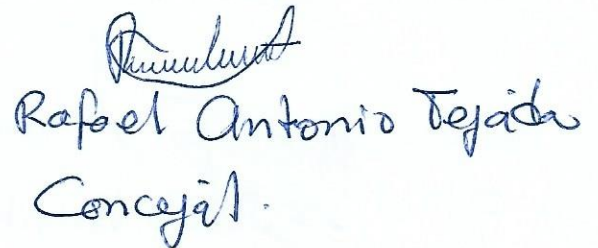 Rafael Antonio Tejáda
Concejál.